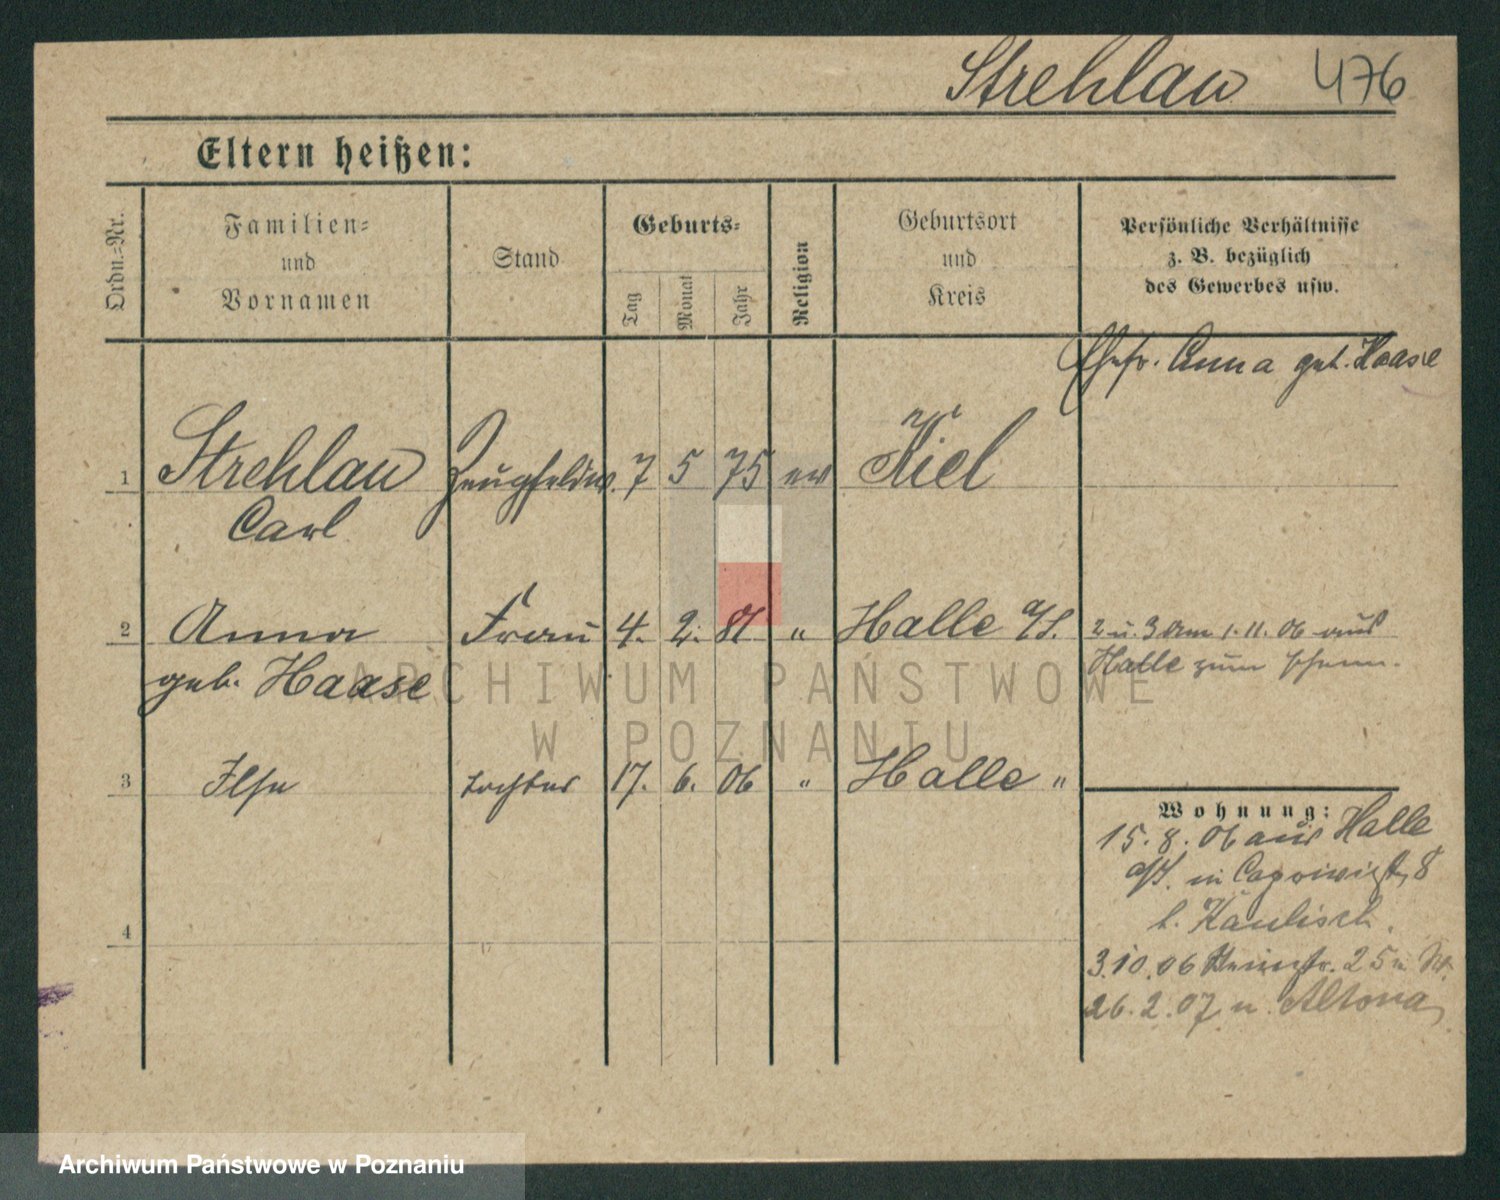 Strehlau 476
Eltern heißen:
Ordn.-Nr.
Familien-
und
Vornamen
Stand
Geburts-
Tag
Monat
Jahr
Religion
Geburtsort
und
Kreis
Persönliche Verhältnisse
z. B. bezüglich
des Gewerbes usw.
Ehefr. Anna geb. Haase
1 Strehlau Zeugfeldw. 7 5 75 ev Kiel
Carl
2 Anna Frau 4. 2. 81 " Halle a/S. 2 u. 3 am 1.11.06 aus
geb. Haase Halle zum Ehem.
3 Ilse Tochter 17. 6. 06 " Halle "
Wohnung:
15.8.06 aus Halle
a/S. in 8
b. Kaulisch.
4
3.10.06 25
26.2.07 n. Altona
ARCHIWUM PAŃSTWOWE
W POZNANIU
Archiwum Państwowe w Poznaniu